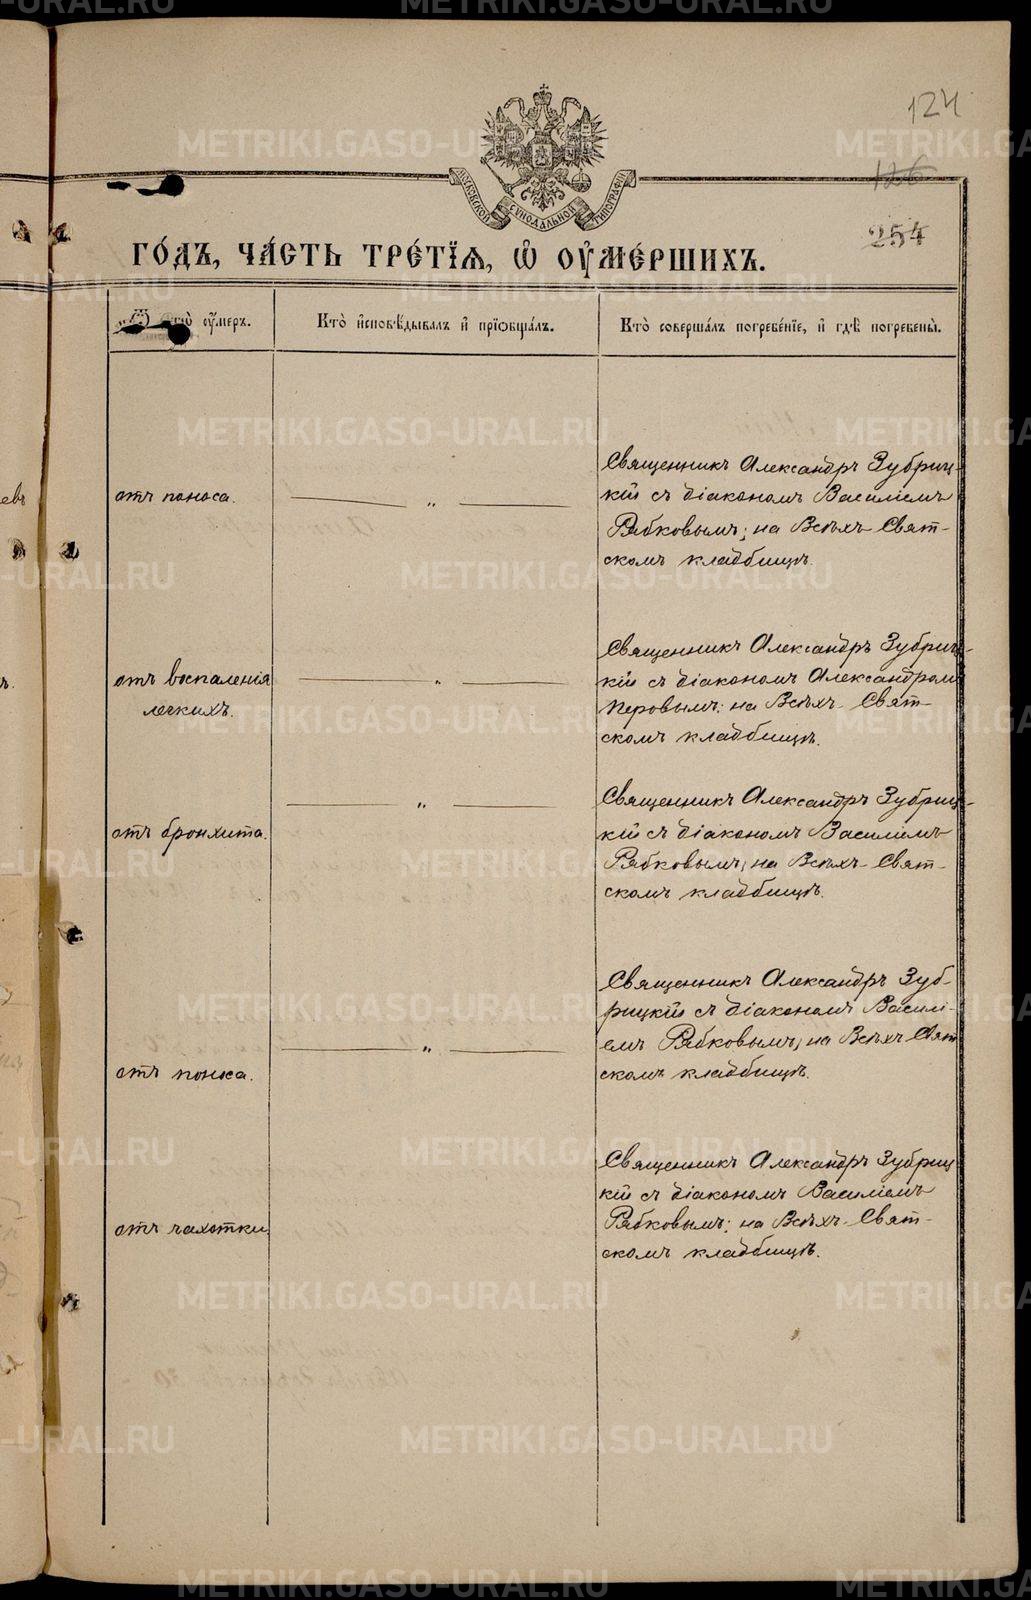 124
126
254
МОСКОВСКОЙ СѴНОДАЛЬНОЙ ТИПОГРАФІИ
ГО́ДЪ, ЧА́СТЬ ТРЕ́ТІѦ, Ѽ ОУ҆МЕ́РШИХЪ.
ѿ чегѡ̀ оу҆́меръ.
Кто̀ и҆сповѣ́дывалъ и҆ прїѡбща́лъ.
Кто̀ соверша́лъ погребе́нїе, и҆ гдѣ̀ погребены̀.
отъ поноса.
— „ —
Священникъ Александръ Зубриц-
кій съ діакономъ Василіемъ
Рябковымъ; на Всѣхъ-Свят-
скомъ кладбищѣ.
отъ воспаленія
легкихъ.
— „ —
Священникъ Александръ Зубриц-
кій съ діакономъ Александромъ
Перовымъ; на Всѣхъ-Свят-
скомъ кладбищѣ.
отъ бронхита.
— „ —
Священникъ Александръ Зубриц-
кій съ діакономъ Василіемъ
Рябковымъ; на Всѣхъ-Свят-
скомъ кладбищѣ.
отъ поноса.
— „ —
Священникъ Александръ Зуб-
рицкій съ діакономъ Василі-
емъ Рябковымъ; на Всѣхъ Свят
скомъ кладбищѣ.
отъ чахотки.
Священникъ Александръ Зубриц
кій съ діакономъ Василіемъ
Рябковымъ; на Всѣхъ-Свят-
скомъ кладбищѣ.
METRIKI.GASO-URAL.RU